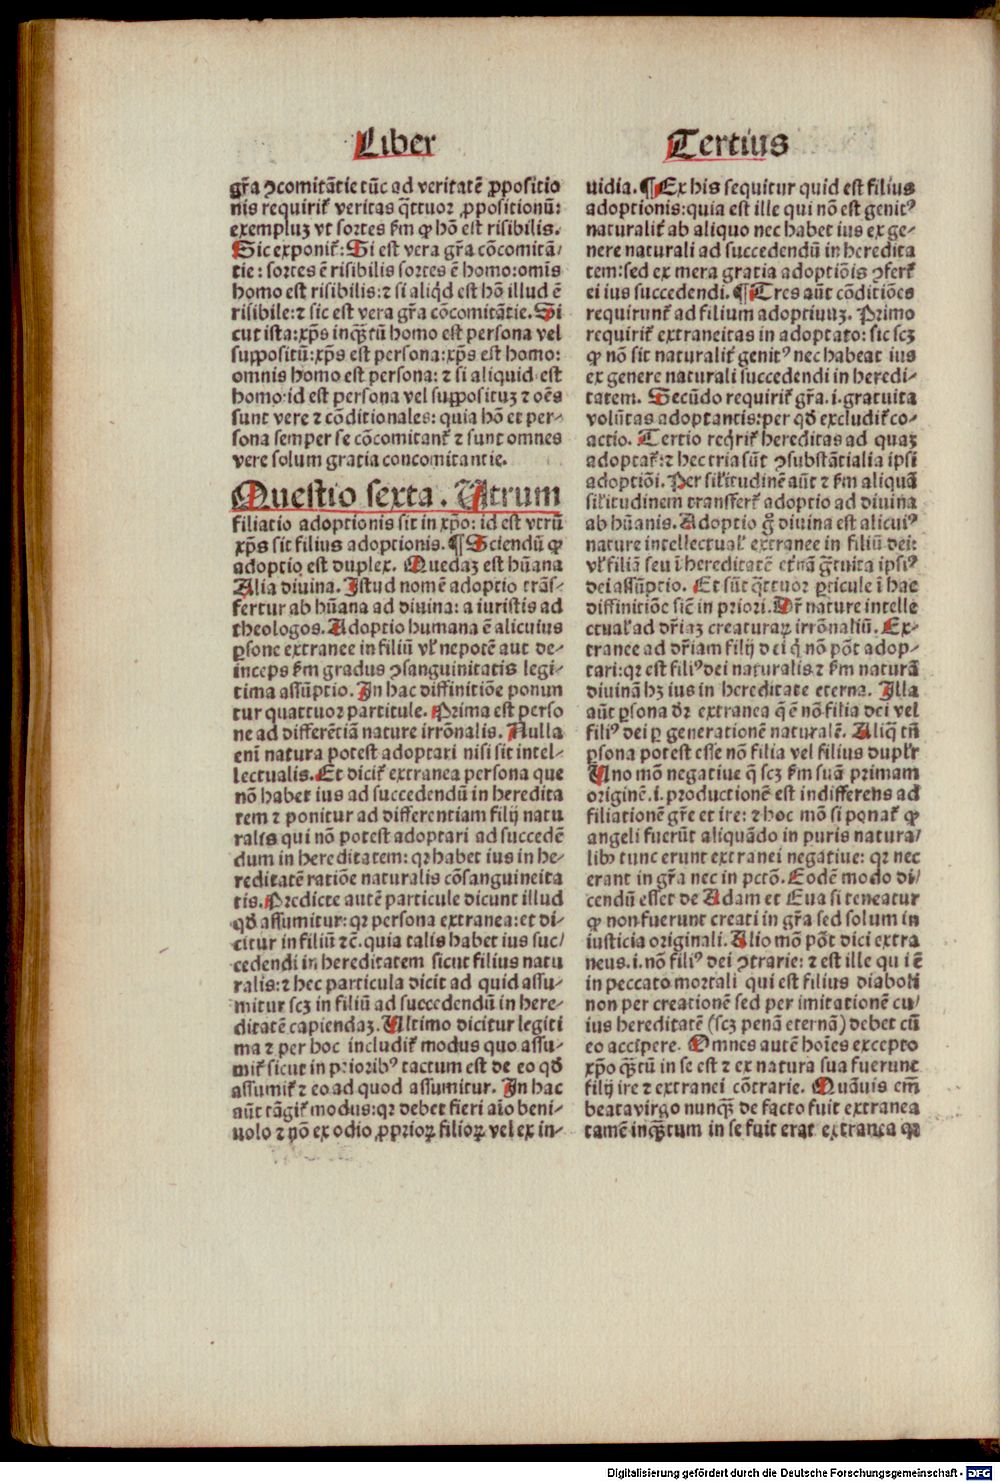 Liber
Tertius
gr̃a ↄcomitãtie tũc ad veritatẽ ꝓpositio
nis requirit̃ veritas q̃ttuor ꝓpositionũ:
exempluꝫ vt sortes ẜm ꝙ hõ est risibilis.
Sic exponit̃: Si est vera gr̃a cõcomitã/
tie: sortes ẽ risibilis sortes ẽ homo: omĩs
homo est risibilis: ⁊ si aliqͥd est hõ illud ẽ
risibile: ⁊ sic est vera gr̃a cõcomitãtie. Si
cut ista: xp̃s inqꝫ̃tũ homo est persona vel
suppositũ: xp̃s est persona: xp̃s est homo:
omnis homo est persona: ⁊ si aliquid est
homo id est persona vel supposituꝫ ⁊ oẽs
sunt vere ⁊ cõditionales: quia hõ et per-
sona semper se cõcomitant̃ ⁊ sunt omnes
vere solum gratia concomitantie.
Questio sexta. Utrum
filiatio adoptionis sit in xp̃o: id est vtrũ
xp̃s sit filius adoptionis. ¶ Sciendũ ꝙ
adoptio est duplex. Quedaꝫ est hũana
Alia diuina. Istud nomẽ adoptio trãs-
fertur ab hũana ad diuina: a iuristis ad
theologos. Adoptio humana ẽ alicuius
ꝑsone extranee in filiũ vl̃ nepotẽ aut de-
inceps ẜm gradus ↄsanguinitatis legi-
tima assũptio. In hac diffinitiõe ponun
tur quattuor partitule. Prima est perso
ne ad differẽtiã nature irrõnalis. Nulla
eni̇̃ natura potest adoptari nisi sit intel-
lectualis. Et dicit̃ extranea persona que
nõ habet ius ad succedendũ in heredita
tem ⁊ ponitur ad differentiam filij natu
ralis qui nõ potest adoptari ad succedẽ
dum in hereditatem: qꝛ habet ius in he-
reditatẽ ratiõe naturalis cõsanguineita
tis. Predicte autẽ particule dicunt illud
qð assumitur: qꝛ persona extranea: et di-
citur in filiũ ⁊c̃. quia talis habet ius suc/
cedendi in hereditatem sicut filius natu
ralis: ⁊ hec particula dicit ad quid assu-
mitur scꝫ in filiũ ad succedendũ in here-
ditatẽ capiendaꝫ. Ultimo dicitur legiti
ma ⁊ per hoc includit̃ modus quo assu-
mit̃ sicut in prioribꝰ tactum est de eo qð
assumit̃ ⁊ eo ad quod assumitur. In hac
aũt tãgit̃ modus: qꝛ debet fieri aĩo beni-
uolo ⁊ nõ ex odio ꝓprioꝝ filioꝝ vel ex in-
uidia. ¶ Ex his sequitur quid est filius
adoptionis: quia est ille qui nõ est genitꝰ
naturalit̃ ab aliquo nec habet ius ex ge-
nere naturali ad succedendũ in heredita
tem: sed ex mera gratia adoptiõis ↄfert̃
ei ius succedendi. ¶ Tres aũt cõditiões
requirunt̃ ad filium adoptiuuꝫ. Primo
requirit̃ extraneitas in adoptato: sic scꝫ
ꝙ nõ sit naturalit̃ genitꝰ nec habeat ius
ex genere naturali succedendi in heredi-
tatem. Secũdo requirit̃ gr̃a. i. gratuita
volũtas adoptantis: per qð excludit̃ co-
actio. Tertio reqͥrit̃ hereditas ad quaꝫ
adoptat̃: ⁊ hec tria sũt ↄsubstãtialia ipsi
adoptiõi. Per sil̃itudinẽ aũt ⁊ ẜm aliquã
sil̃itudinem transfert̃ adoptio ad diuina
ab hũanis. Adoptio gͦ̃ diuina est alicuiꝰ
nature intellectual̃ extranee in filiũ dei:
vl̃ filiã seu ĩ hereditatẽ et̃nã gͣ̃tuita ipsiꝰ
dei assũptio. Et sũt q̃ttuor ꝑticule ĩ hac
diffinitiõe sic̃ in priori. Dr̃ nature intelle
ctual̃ ad dr̃iaꝫ creaturaꝝ irrõnaliũ. Ex-
tranee ad dr̃iam filij dei qͥ nõ põt adop-
tari: qꝛ est filiꝰ dei naturalis ⁊ ẜm naturã
diuinã hꝫ ius in hereditate eterna. Illa
aũt ꝑsona dr̃ extranea q̃ ẽ nõ filia dei vel
filiꝰ dei ꝑ generationẽ naturalẽ. Aliq̃ tñ
ꝑsona potest esse nõ filia vel filius dupl̃r
Uno mõ negatiue q̃ scꝫ ẜm suã primam
originẽ. i. productionẽ est indifferens ad
filiationẽ gr̃e et ire: ⁊ hoc mõ si ponat̃ ꝙ
angeli fuerũt aliquãdo in puris natura/
libꝰ tunc erunt extranei negatiue: qꝛ nec
erant in gr̃a nec in pctõ. Eodẽ modo di/
cendũ esset de Adam et Eua si teneatur
ꝙ non fuerunt creati in gr̃a sed solum in
iusticia originali. Alio mõ põt dici extra
neus. i. nõ filiꝰ dei ↄtrarie: ⁊ est ille qui ẽ
in peccato mortali qui est filius diaboli
non per creationẽ sed per imitationẽ cu/
ius hereditatẽ (scꝫ penã eternã) debet cũ
eo accipere. Omnes autẽ hoĩes excepto
xp̃o qꝫ̃tũ in se est ⁊ ex natura sua fuerunt
filij ire ⁊ extranei cõtrarie. Quãuis em̃
beata virgo nunqꝫ̃ de facto fuit extranea
tamẽ inqꝫ̃tum in se fuit erat extranea qꝛ
Digitalisierung gefördert durch die Deutsche Forschungsgemeinschaft - DFG